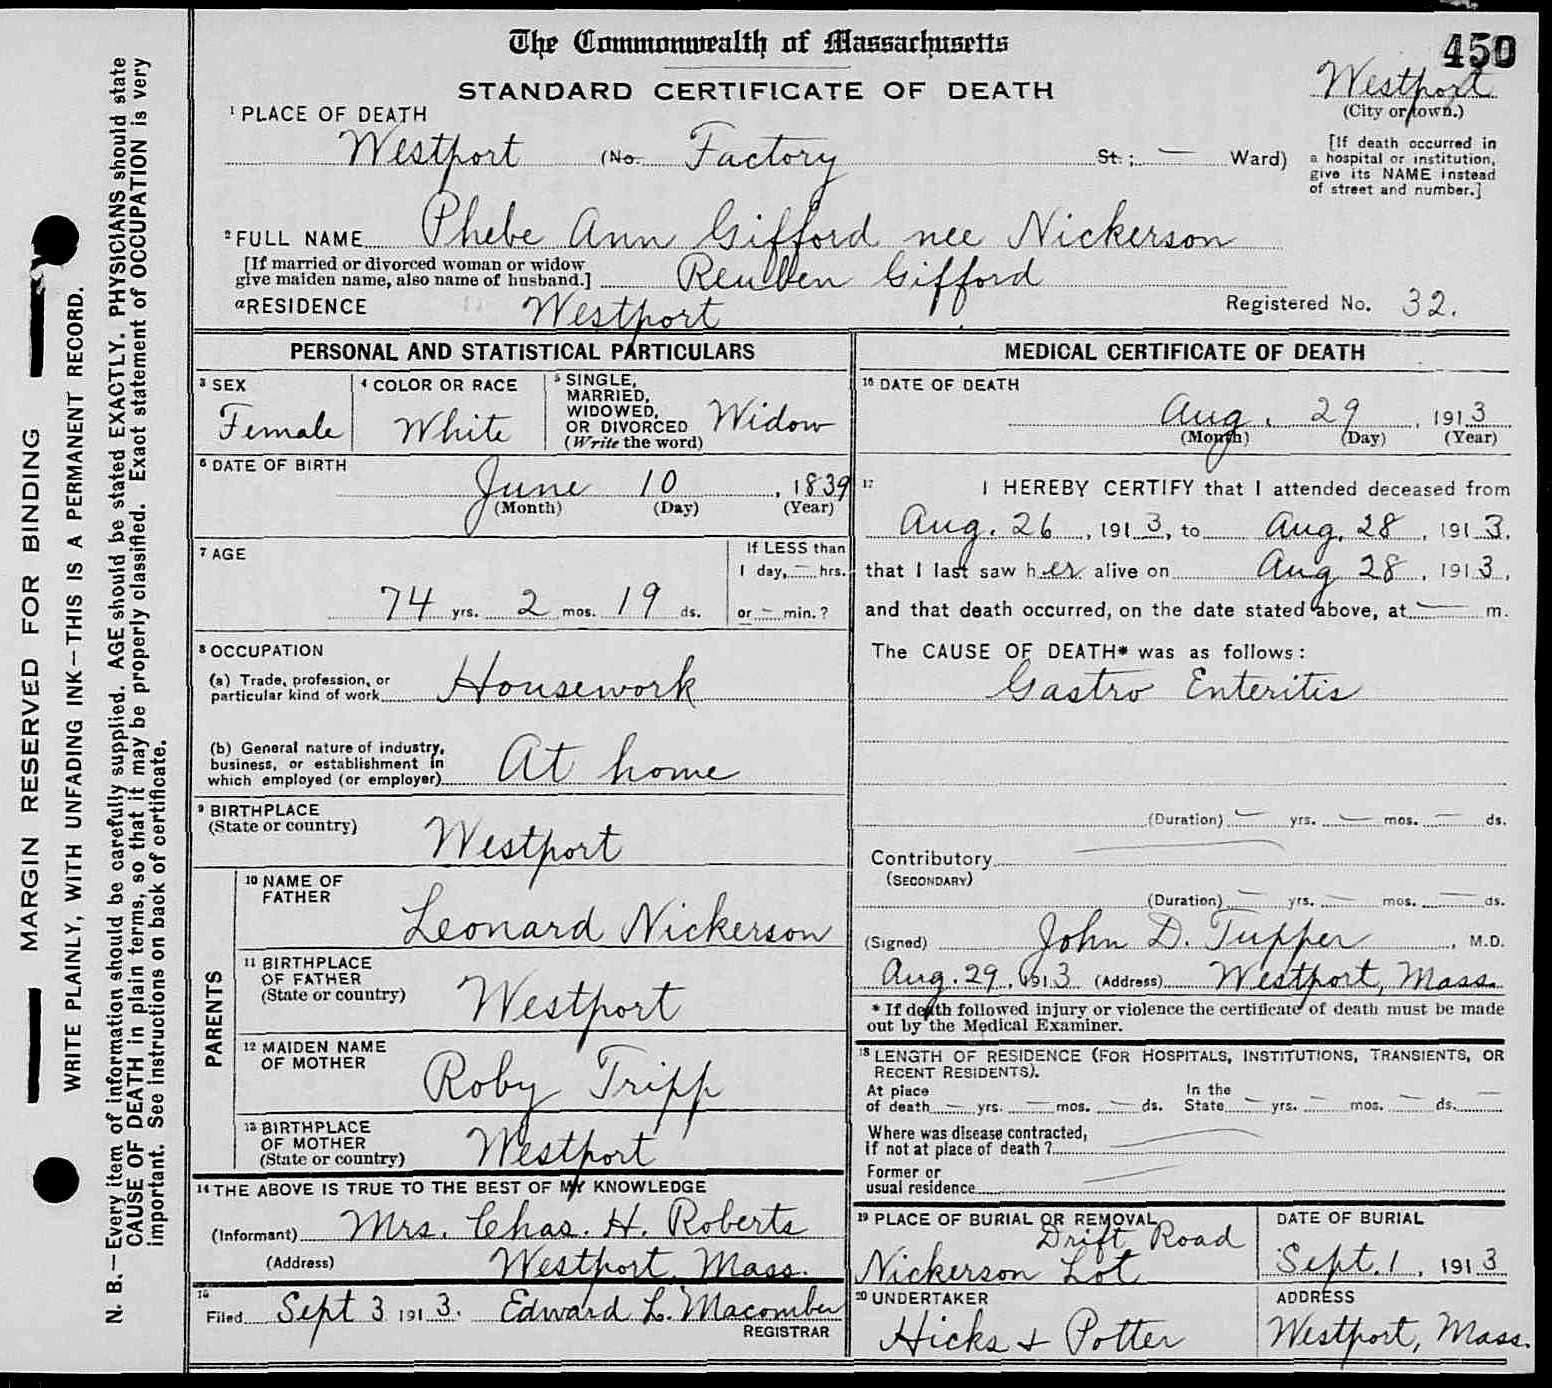 The Commonwealth of Massachusetts
450
STANDARD CERTIFICATE OF DEATH
Westport
(City or town.)
1 PLACE OF DEATH
Westport (No. Factory St.; — Ward)
[If death occurred in
a hospital or institution,
give its NAME instead
of street and number.]
2 FULL NAME Phebe Ann Gifford nee Nickerson
[If married or divorced woman or widow
give maiden name, also name of husband.] Reuben Gifford
a RESIDENCE Westport Registered No. 32.
PERSONAL AND STATISTICAL PARTICULARS
3 SEX
Female
4 COLOR OR RACE
White
5 SINGLE,
MARRIED,
WIDOWED,
OR DIVORCED
(Write the word)
Widow
6 DATE OF BIRTH
June 10, 1839
(Month) (Day) (Year)
7 AGE
74 yrs. 2 mos. 19 ds.
If LESS than
1 day, — hrs.
or — min.?
8 OCCUPATION
(a) Trade, profession, or
particular kind of work Housework
(b) General nature of industry,
business, or establishment in
which employed (or employer) At home
9 BIRTHPLACE
(State or country)
Westport
PARENTS
10 NAME OF
FATHER
Leonard Nickerson
11 BIRTHPLACE
OF FATHER
(State or country)
Westport
12 MAIDEN NAME
OF MOTHER
Roby Tripp
13 BIRTHPLACE
OF MOTHER
(State or country)
Westport
14 THE ABOVE IS TRUE TO THE BEST OF MY KNOWLEDGE
(Informant) Mrs. Chas. H. Roberts
(Address) Westport, Mass.
15
Filed Sept 3 1913. Edward L. Macomber
REGISTRAR
MEDICAL CERTIFICATE OF DEATH
16 DATE OF DEATH
Aug. 29, 1913
(Month) (Day) (Year)
17 I HEREBY CERTIFY that I attended deceased from
Aug. 26, 1913, to Aug. 28, 1913,
that I last saw her alive on Aug 28, 1913,
and that death occurred, on the date stated above, at — m.
The CAUSE OF DEATH* was as follows:
Gastro Enteritis
(Duration) — yrs. — mos. — ds.
Contributory
(SECONDARY)
(Duration) — yrs. — mos. — ds.
(Signed) John D. Tupper, M.D.
Aug. 29, 1913 (Address) Westport, Mass.
* If death followed injury or violence the certificate of death must be made
out by the Medical Examiner.
18 LENGTH OF RESIDENCE (FOR HOSPITALS, INSTITUTIONS, TRANSIENTS, OR
RECENT RESIDENTS).
At place
of death — yrs. — mos. — ds.
In the
State — yrs. — mos. — ds. —
Where was disease contracted,
if not at place of death?
Former or
usual residence
19 PLACE OF BURIAL OR REMOVAL
Drift Road
Nickerson Lot
DATE OF BURIAL
Sept. 1, 1913
20 UNDERTAKER
Hicks & Potter
ADDRESS
Westport, Mass.
MARGIN RESERVED FOR BINDING
WRITE PLAINLY, WITH UNFADING INK—THIS IS A PERMANENT RECORD.
N. B.—Every item of information should be carefully supplied. AGE should be stated EXACTLY. PHYSICIANS should state
CAUSE OF DEATH in plain terms, so that it may be properly classified. Exact statement of OCCUPATION is very
important. See instructions on back of certificate.